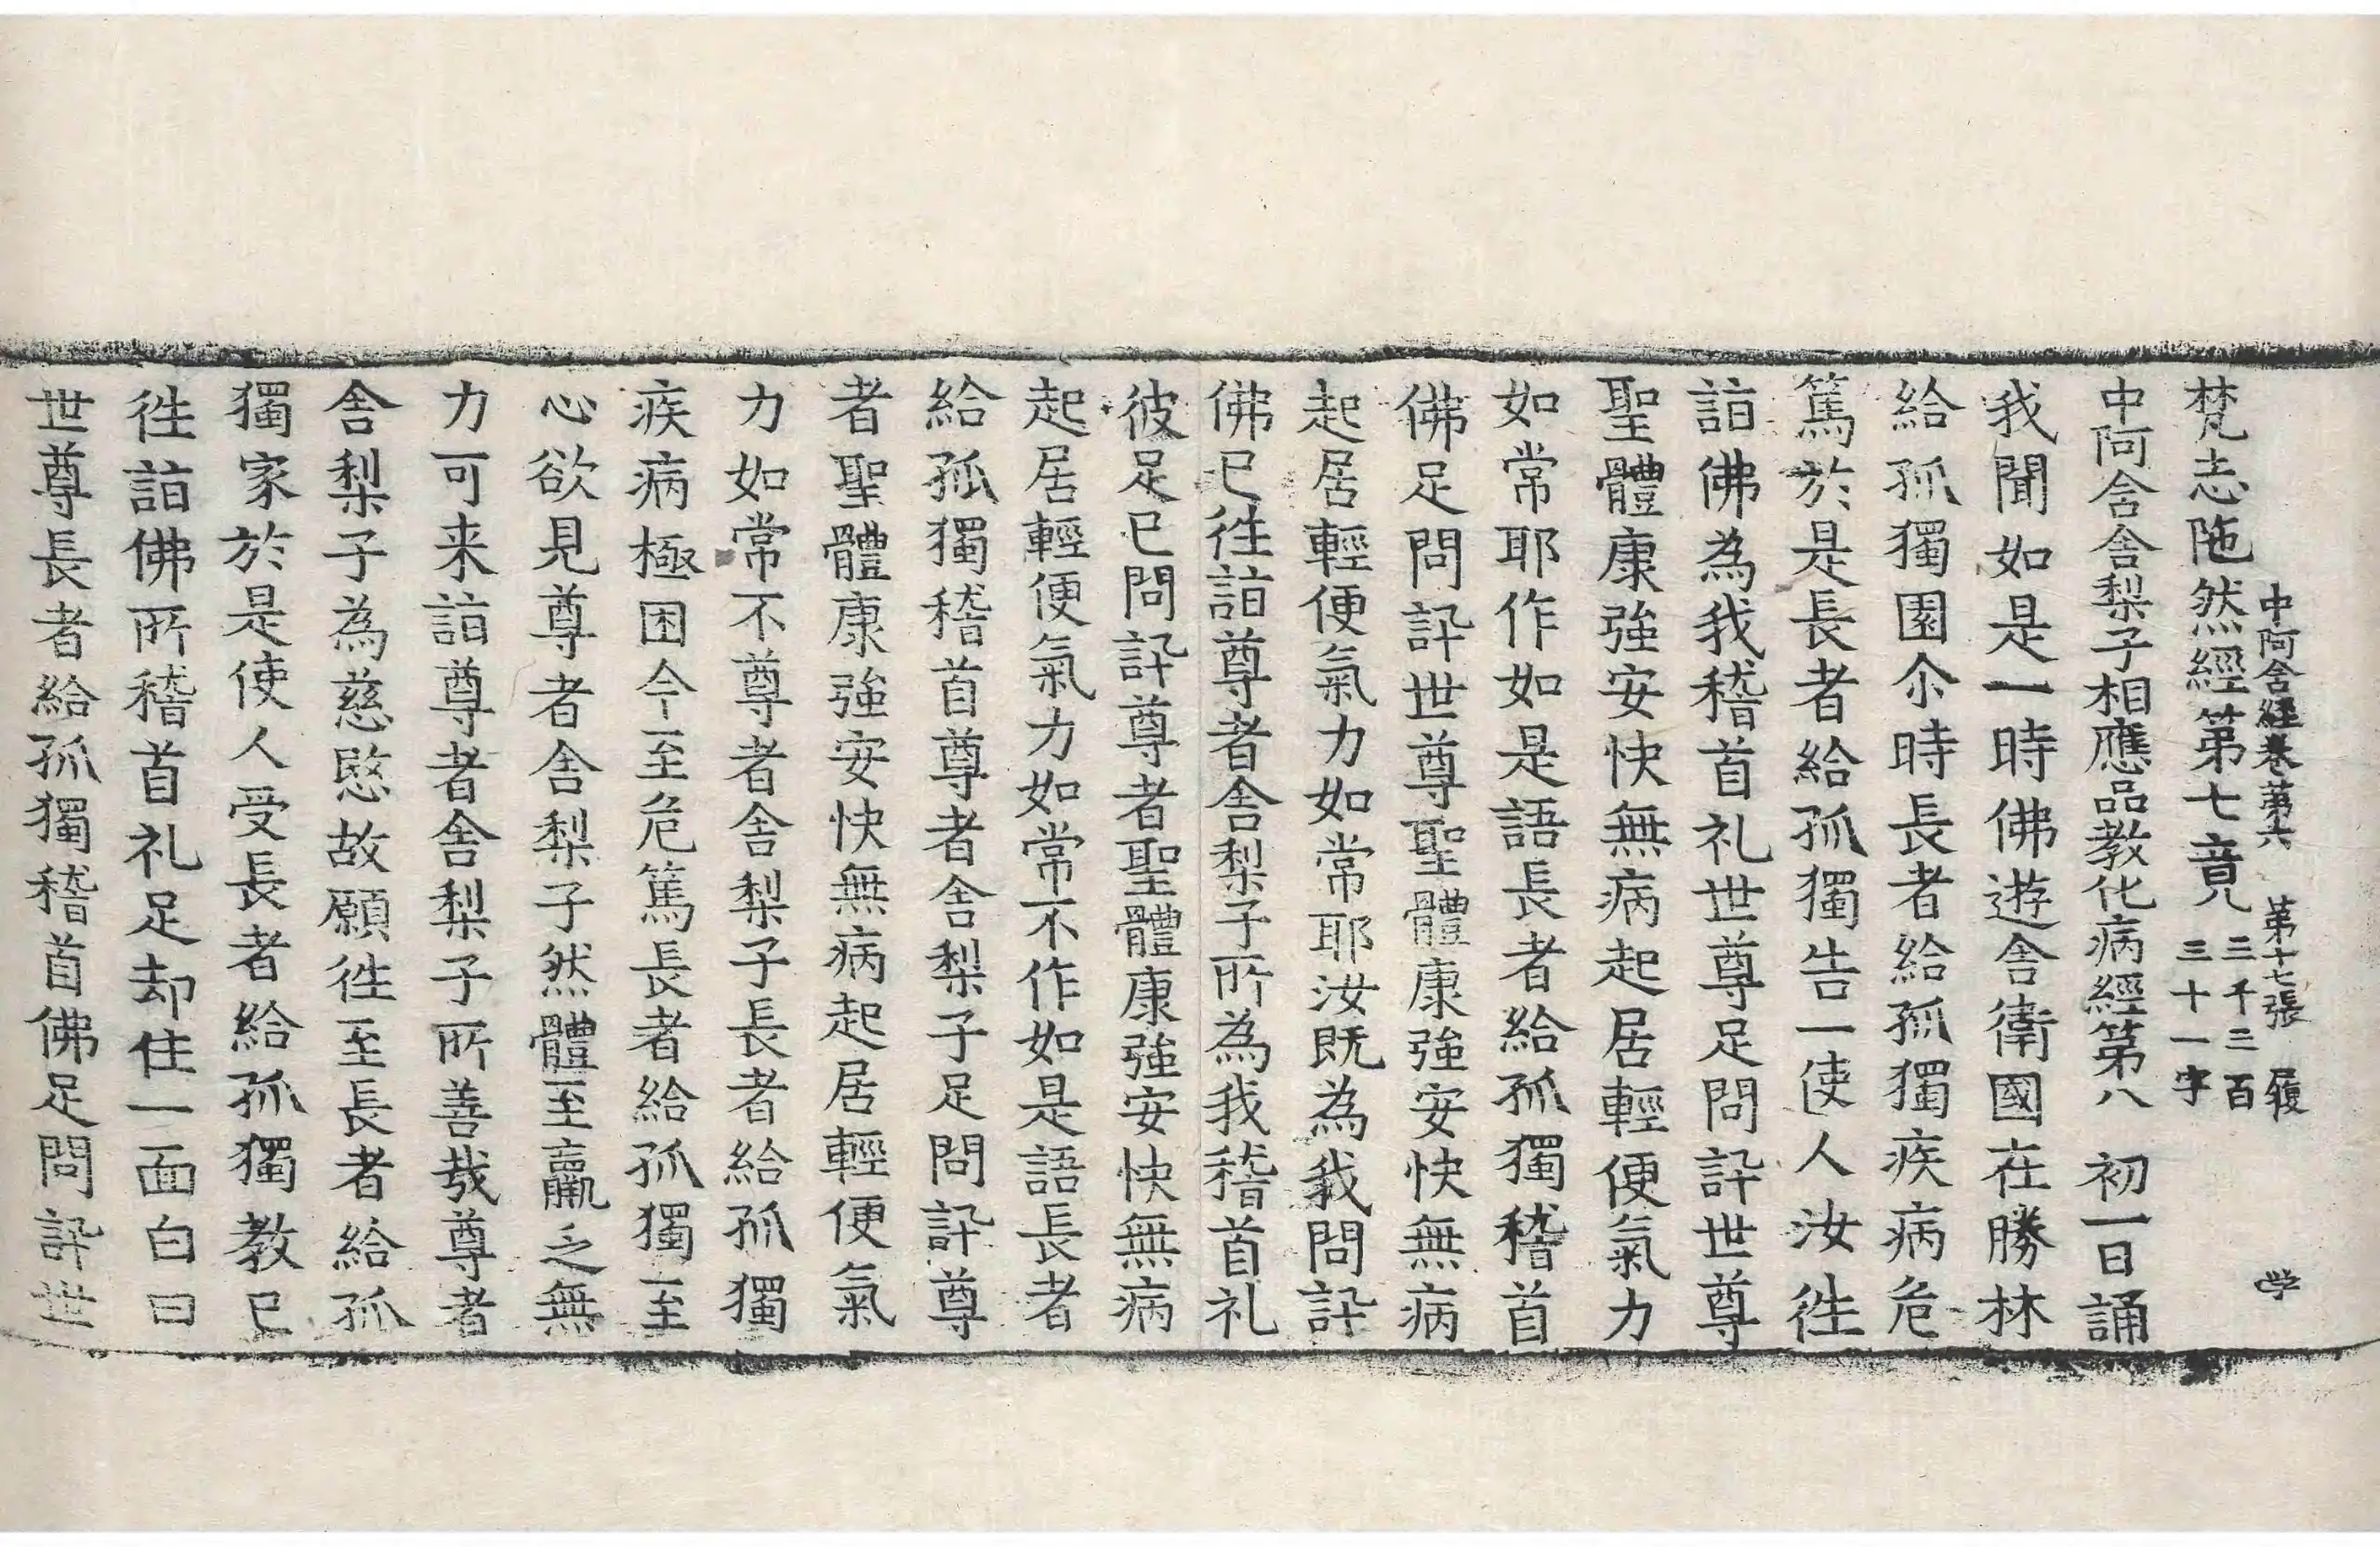 中阿含經卷第六　第十七張　履
梵志陁然經第七竟　三千三百三十一字
中阿含舍梨子相應品教化病經第八　初一日誦
我聞如是一時佛遊舍衛國在勝林
給孤獨園尒時長者給孤獨疾病危
篤於是長者給孤獨告一使人汝徃
詣佛為我稽首礼世尊足問訊世尊
聖體康強安快無病起居輕便氣力
如常耶作如是語長者給孤獨稽首
佛足問訊世尊聖體康強安快無病
起居輕便氣力如常耶汝既為我問訊
佛已徃詣尊者舍梨子所為我稽首礼
彼足已問訊尊者聖體康強安快無病
起居輕便氣力如常不作如是語長者
給孤獨稽首尊者舍梨子足問訊尊
者聖體康強安快無病起居輕便氣
力如常不尊者舍梨子長者給孤獨
疾病極困今至危篤長者給孤獨至
心欲見尊者舍梨子然體至羸乏無
力可来詣尊者舍梨子所善哉尊者
舍梨子為慈愍故願徃至長者給孤
獨家於是使人受長者給孤獨教已
徃詣佛所稽首礼足却住一面白曰
世尊長者給孤獨稽首佛足問訊世